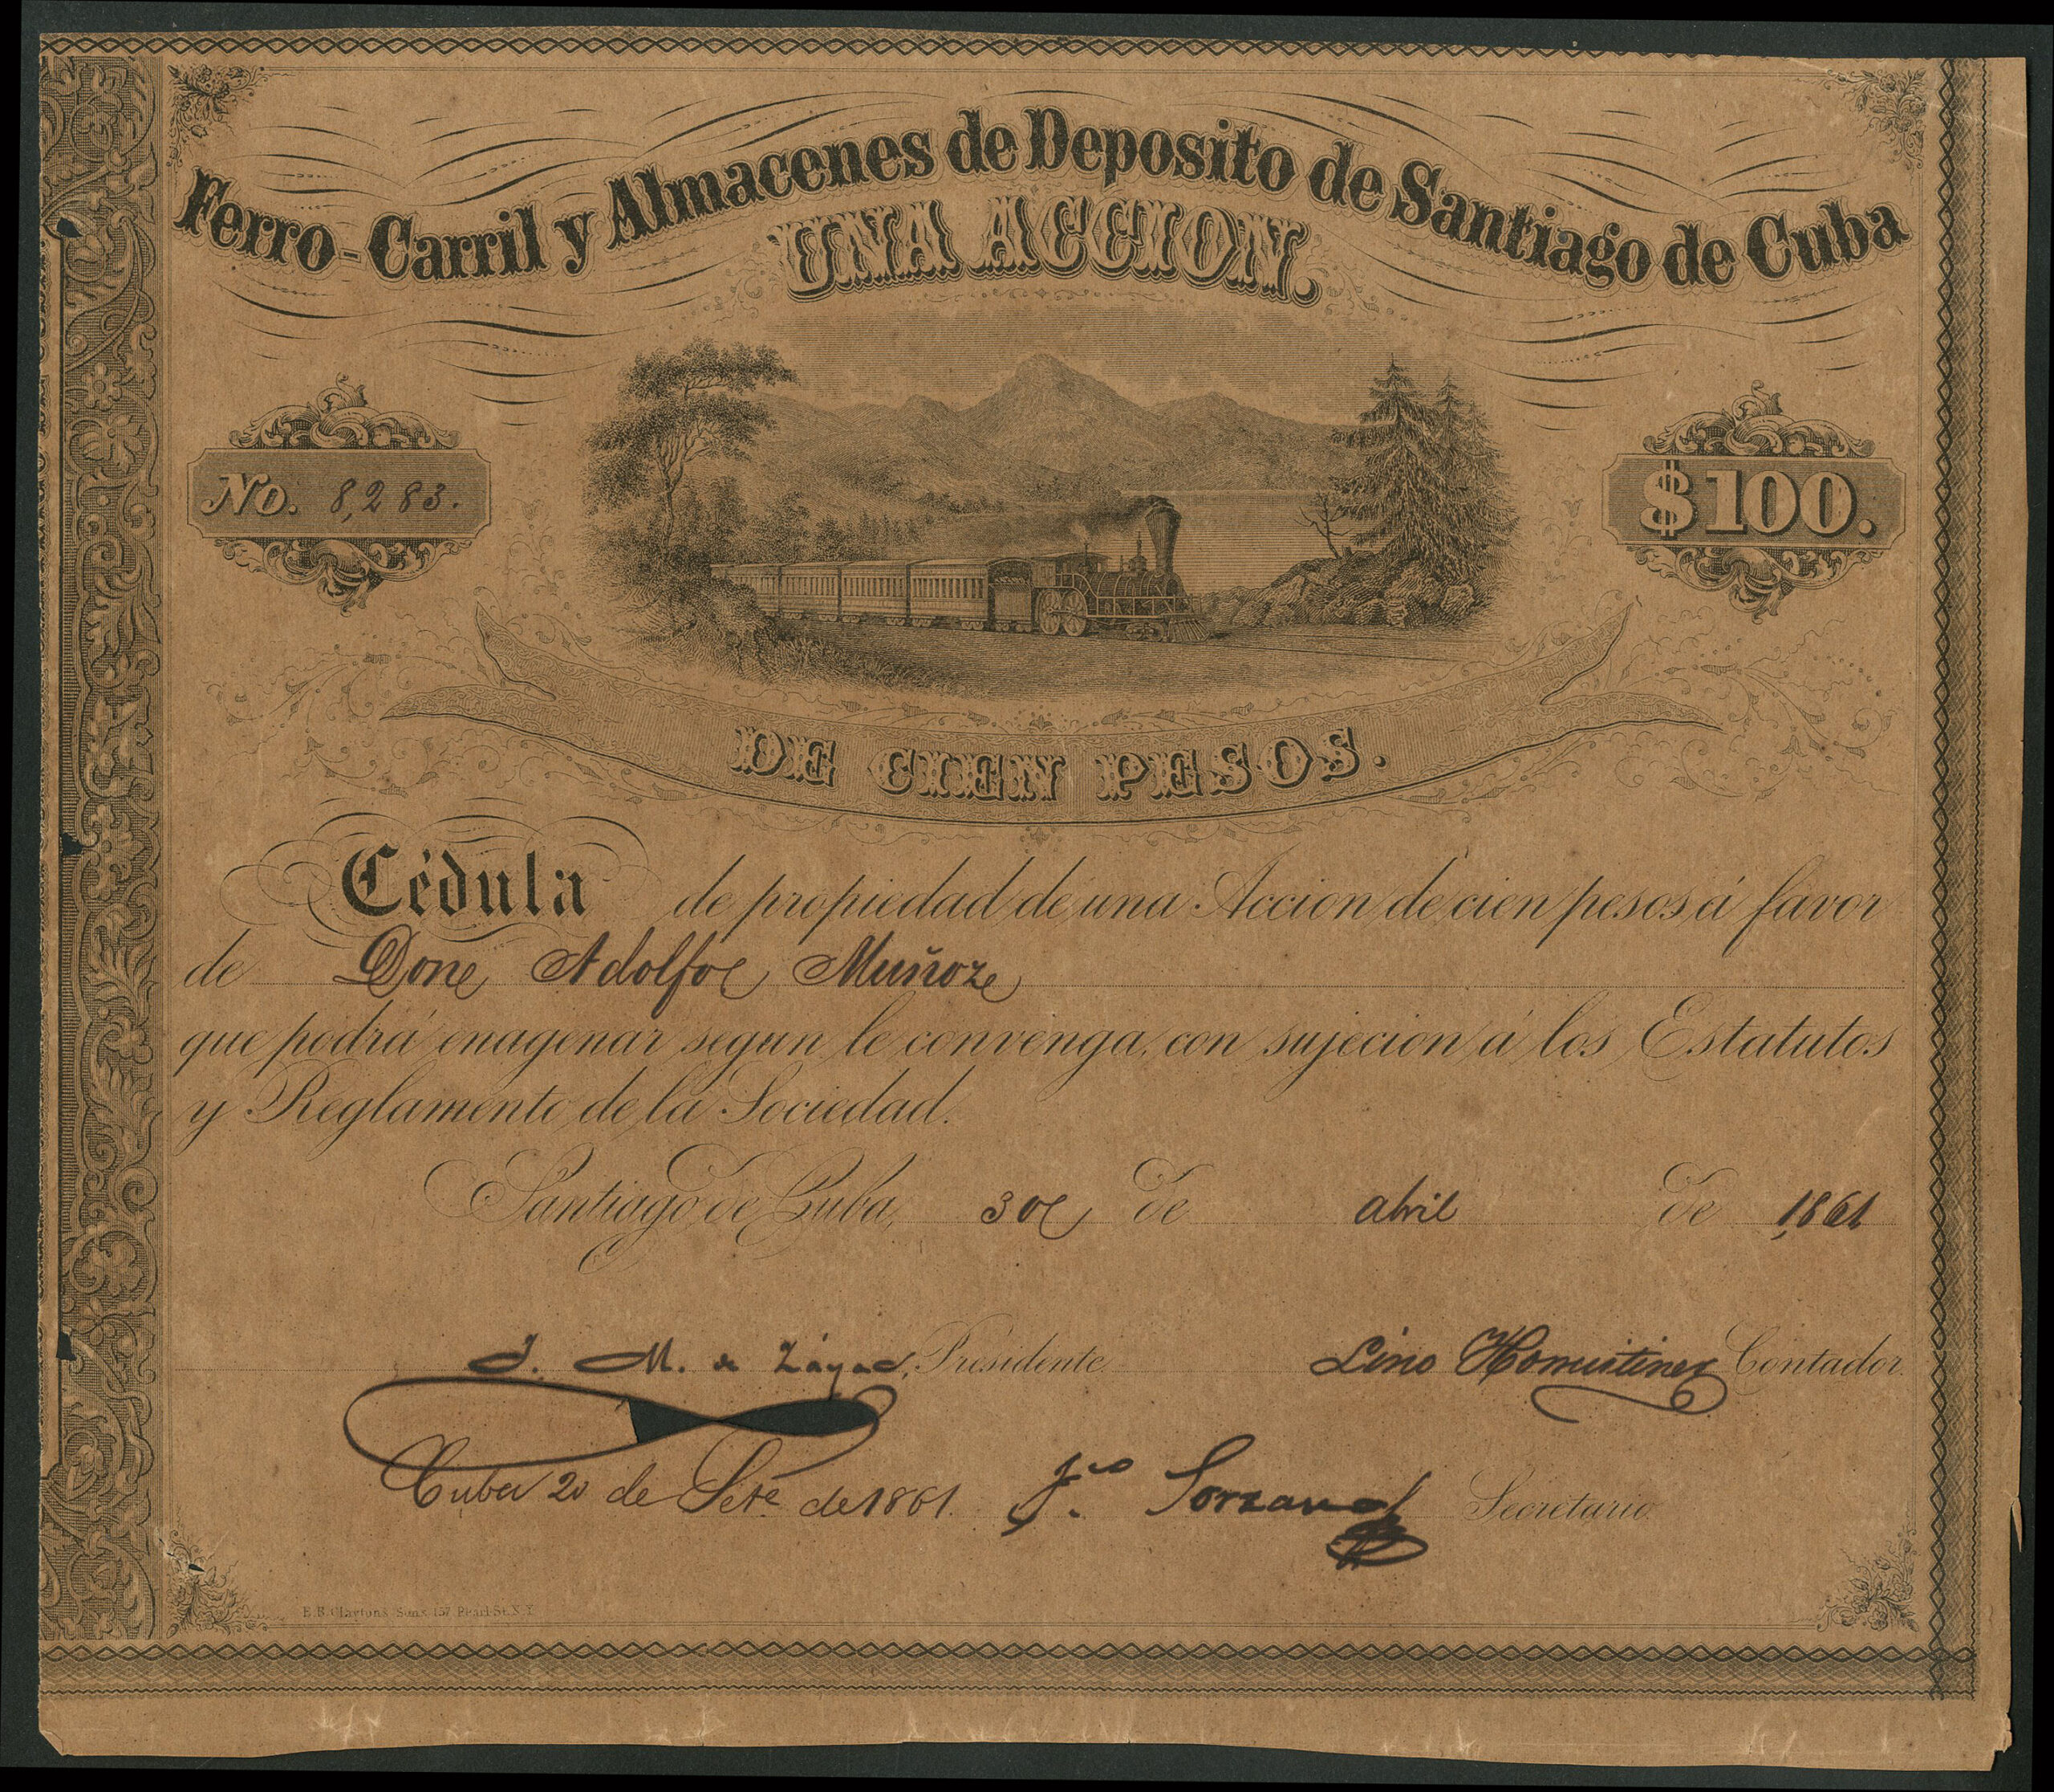 Ferro-Carril y Almacenes de Deposito de Santiago de Cuba
UNA ACCION.
No. 8,283.
$100.
DE CIEN PESOS.
Cédula de propiedad de una Accion de cien pesos á favor
de Don Adolfo Muñoz
que podrá enagenar segun le convenga, con sujecion á los Estatutos
y Reglamento de la Sociedad.
Santiago de Cuba, 30 de abril de 1861
J. M. de Zayas, Presidente
Lino Contador.
Cuba 20 de Sete de 1861. Sorzano Secretario.
E. B. Clayton & Sons 157 Pearl St. N.Y.